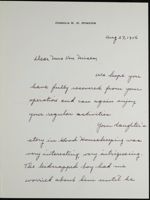 Aug 27, 1956
Dear Miss Van
We hope you
have fully recovered from your
operation and can again enjoy
your regular activities
Your daughter's
story in Good Housekeeping was
very interesting, very intriguing
The kidnapped boy had me
worried about him until he